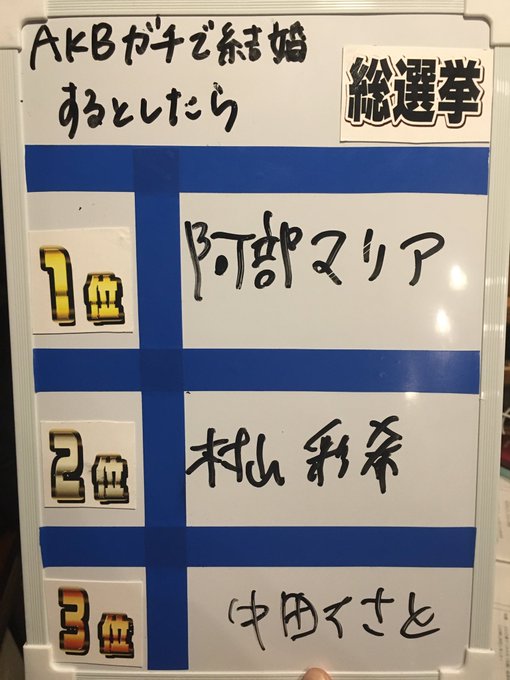 AKBガチで結婚
するとしたら
総選挙
1位
阿部マリア
2位
村山彩希
3位
中田ちさと